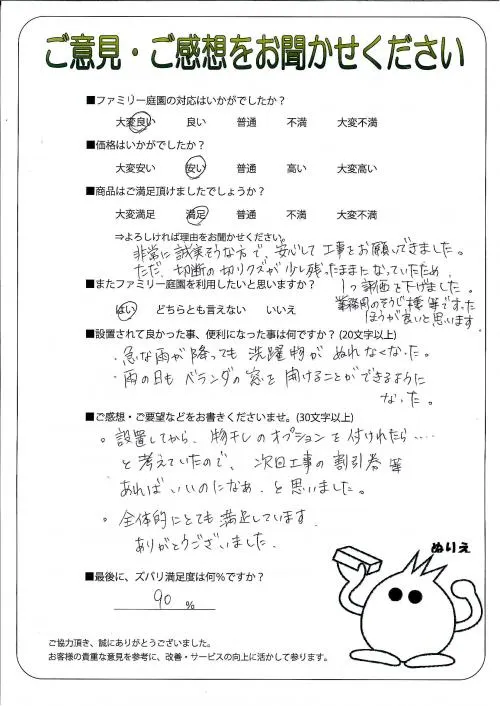 ご意見・ご感想をお聞かせください
■ファミリー庭園の対応はいかがでしたか？
大変良い 良い 普通 不満 大変不満
■価格はいかがでしたか？
大変安い 安い 普通 高い 大変高い
■商品はご満足頂けましたでしょうか？
大変満足 満足 普通 不満 大変不満
⇒よろしければ理由をお聞かせください。
非常に誠実そうな方で、安心して工事をお願いできました。
ただ、切断の切りクズが少し残ったままになっていたため、
1つ評価を下げました。
業務用のそうじ機等で吸った
ほうが良いと思います
■またファミリー庭園を利用したいと思いますか？
はい どちらとも言えない いいえ
■設置されて良かった事、便利になった事は何ですか？(20文字以上)
・急な雨が降っても洗濯物がぬれなくなった。
・雨の日もベランダの窓を開けることができるように
なった。
■ご感想・ご要望などをお書きくださいませ。(30文字以上)
。設置してから、物干しのオプションを付けれたら....
と考えていたので、次回工事の割引券等
あればいいのになあ、と思いました。
。全体的にとても満足しています。
ありがとうございました。
■最後に、ズバリ満足度は何％ですか？
90 %
ぬりえ
ご協力頂き、誠にありがとうございました。
お客様の貴重な意見を参考に、改善・サービスの向上に活かして参ります。